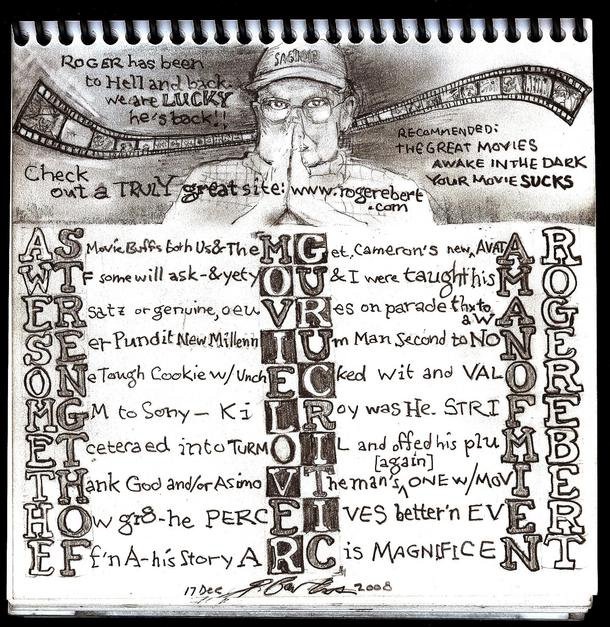 SAGINAW
ROGER has been
to Hell and back.
we are LUCKY
he's back!!
RECOMMENDED:
THE GREAT MOVIES
AWAKE IN THE DARK
YOUR MOVIE SUCKS
Check
out a TRULY great site: www.rogerebert
.com
AS Movie Buffs both Us&The MGet, Cameron's new AVATAR
WTF some will ask-&yety OU & I were taught his MO
ERsatz or genuine, oeuVRes on parade thx to aw AG
SEer Pundit New MillennIUm Man Second to No NE
ONe Tough Cookie w/UnchECked wit and VALOR
MGM to Sony - KiLRoy was He. STRIFE
ETceteraed into TURMOIL and offed his pluMB
THank God and/or AsimoV The man's [again] ONE w/MovIE
HOw gr8-he PERCEIVES better'n EVER
EFf'n A-his Story ARC is MAGNIFICENT
17 Dec 2008